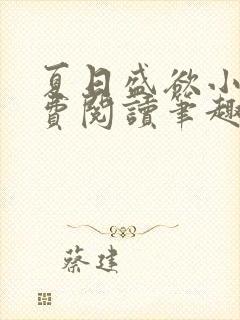 夏日盛欲小
費閱讀筆趣
蔡建